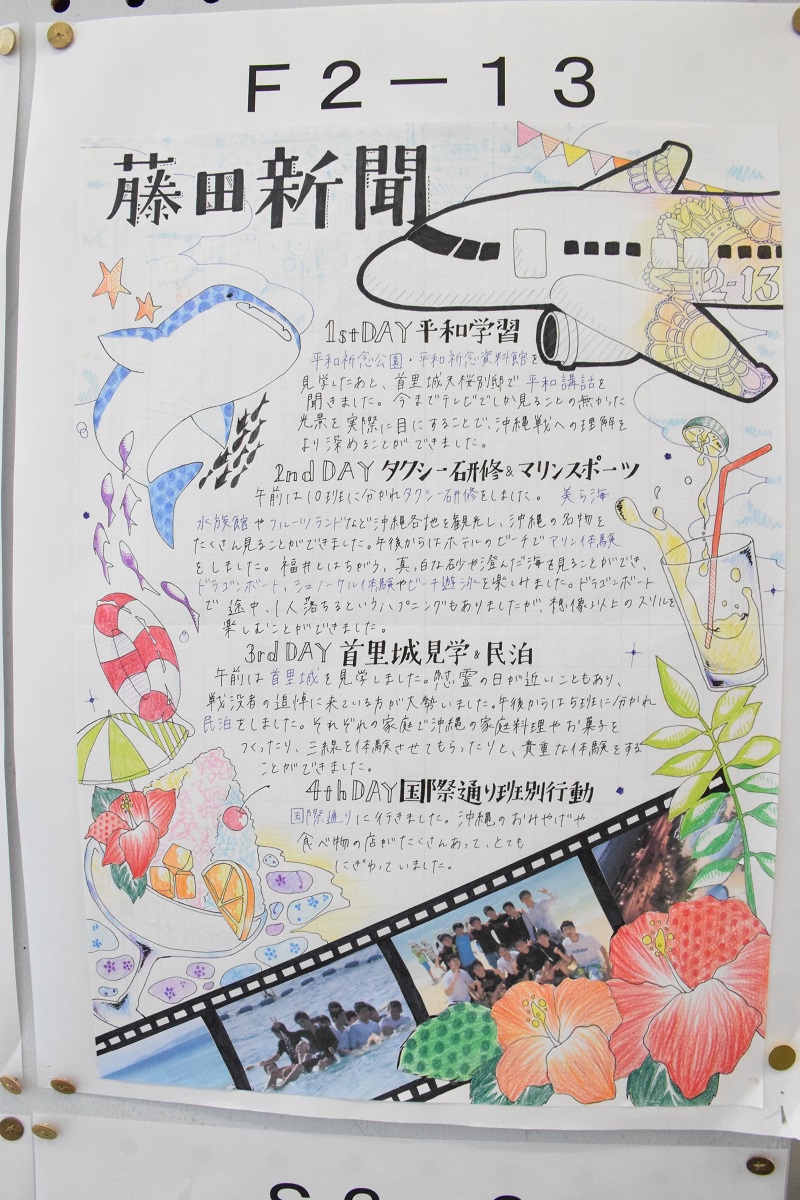 F2-13
藤田新聞
2-13
1stDAY 平和学習
平和祈念公園・平和祈念資料館を
見学したあと、首里城天桜別邸で平和講話を
聞きました。今までテレビでしか見ることの無かった
光景を実際に目にすることで、沖縄戦への理解を
より深めることができました。
2nd DAY タクシー研修&マリンスポーツ
午前は10班に分かれタクシー研修をしました。美ら海
水族館やフルーツランドなど沖縄各地を観光し、沖縄の名物を
たくさん見ることができました。午後からはホテルのビーチでマリン体験
をしました。福井とはちがう、真っ白な砂や澄んだ海を見ることができ、
ドラゴンボート、シュノーケル体験やビーチ遊泳を楽しみました。ドラゴンボート
で途中、1人落ちるというハプニングもありましたが、想像以上のスリルを
楽しむことができました。
3rd DAY 首里城見学&民泊
午前は首里城を見学しました。慰霊の日が近いこともあり、
戦没者の追悼に来ている方が大勢いました。午後からは5班に分かれ
民泊をしました。それぞれの家庭で沖縄の家庭料理やお菓子を
つくったり、三線を体験させてもらったりと、貴重な体験をする
ことができました。
4th DAY 国際通り班別行動
国際通りに行きました。沖縄のおみやげや
食べ物の店がたくさんあって、とても
にぎわっていました。